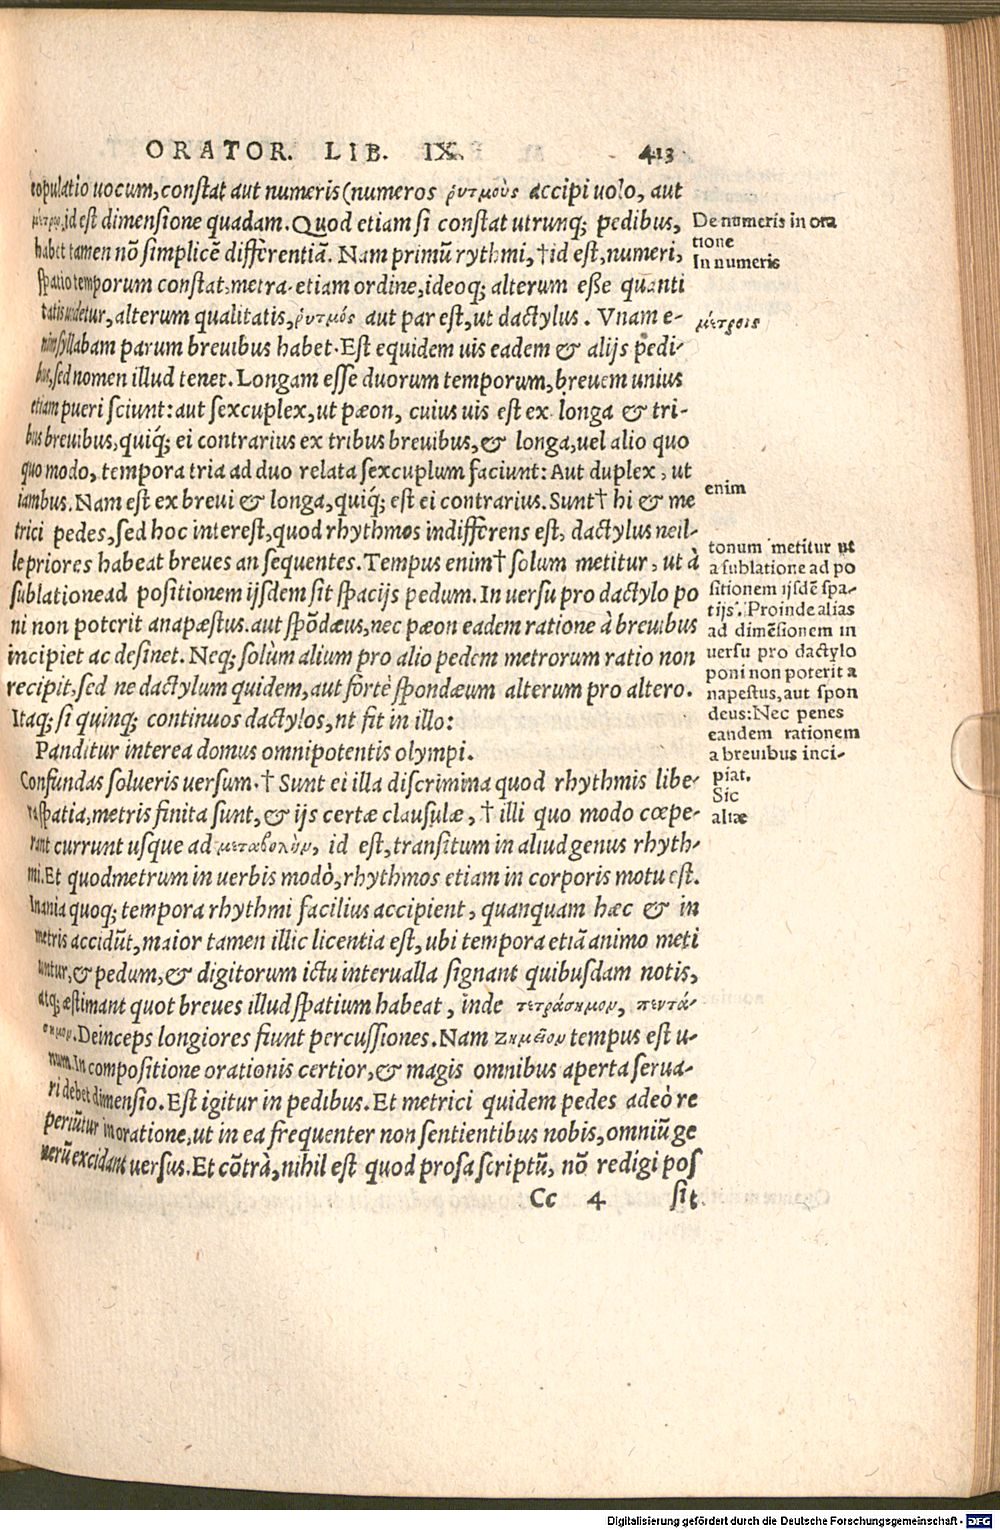 ORATOR. LIB. IX. 413
copulatio uocum, constat aut numeris (numeros ῥυτμοὺς accipi uolo, aut
μέτρῳ, id est dimensione quadam. Quod etiam si constat utrunq; pedibus,
habet tamen nõ simplicẽ differentiã. Nam primũ rythmi, † id est, numeri,
spatio temporum constat, metra etiam ordine, ideoq; alterum esse quanti
tatis uidetur, alterum qualitatis, ῥυτμός aut par est, ut dactylus. Vnam e-
nim syllabam parum breuibus habet. Est equidem uis eadem & alijs pedi-
bus, sed nomen illud tenet. Longam esse duorum temporum, breuem unius
etiam pueri sciunt: aut sexcuplex, ut pæon, cuius uis est ex longa & tri-
bus breuibus, quiq́; ei contrarius ex tribus breuibus, & longa, uel alio quo
quo modo, tempora tria ad duo relata sexcuplum faciunt: Aut duplex, ut
iambus. Nam est ex breui & longa, quiq́; est ei contrarius. Sunt † hi & me
trici pedes, sed hoc interest, quod rhythmos indifferens est, dactylus neil-
le priores habeat breues an sequentes. Tempus enim † solum metitur, ut à
sublatione ad positionem ijsdem sit spacijs pedum. In uersu pro dactylo po
ni non poterit anapæstus. aut spõdæus, nec pæon eadem ratione à breuibus
incipiet ac desinet. Neq; solùm alium pro alio pedem metrorum ratio non
recipit, sed ne dactylum quidem, aut fortè spondæum alterum pro altero.
Itaq; si quinq; continuos dactylos, nt fit in illo:
Panditur interea domus omnipotentis olympi.
Confundas solueris uersum. † Sunt ei illa discrimina quod rhythmis libe-
ra spatia, metris finita sunt, & ijs certæ clausulæ, † illi quo modo cœpe-
rant currunt usque ad μεταβολὴν, id est, transitum in aliud genus rhyth-
mi. Et quod metrum in uerbis modò, rhythmos etiam in corporis motu est.
Inania quoq; tempora rhythmi facilius accipient, quanquam hæc & in
metris accidũt, maior tamen illic licentia est, ubi tempora etiã animo meti
untur, & pedum, & digitorum ictu interualla signant quibusdam notis,
atq; æstimant quot breues illud spatium habeat, inde τετράσημον, πεντά-
σημον. Deinceps longiores fiunt percussiones. Nam ζημεῖον tempus est u-
num. In compositione orationis certior, & magis omnibus aperta serua-
ri debet dimensio. Est igitur in pedibus. Et metrici quidem pedes adeò re
periũtur in oratione, ut in ea frequenter non sentientibus nobis, omniũ ge
nerũ excidant uersus. Et cõtrà, nihil est quod prosa scriptũ, nõ redigi pos
Cc 4 sit.
De numeris in ora
tione
In numeris
μέτροις
enim
tonum metitur ut
a sublatione ad po
sitionem ijsdẽ spa-
tijs. Proinde alias
ad dimẽsionem in
uersu pro dactylo
poni non poterit a
napestus, aut spon
deus: Nec penes
eandem rationem
a breuibus inci-
piat.
Sic
aliæ
Digitalisierung gefördert durch die Deutsche Forschungsgemeinschaft - DFG